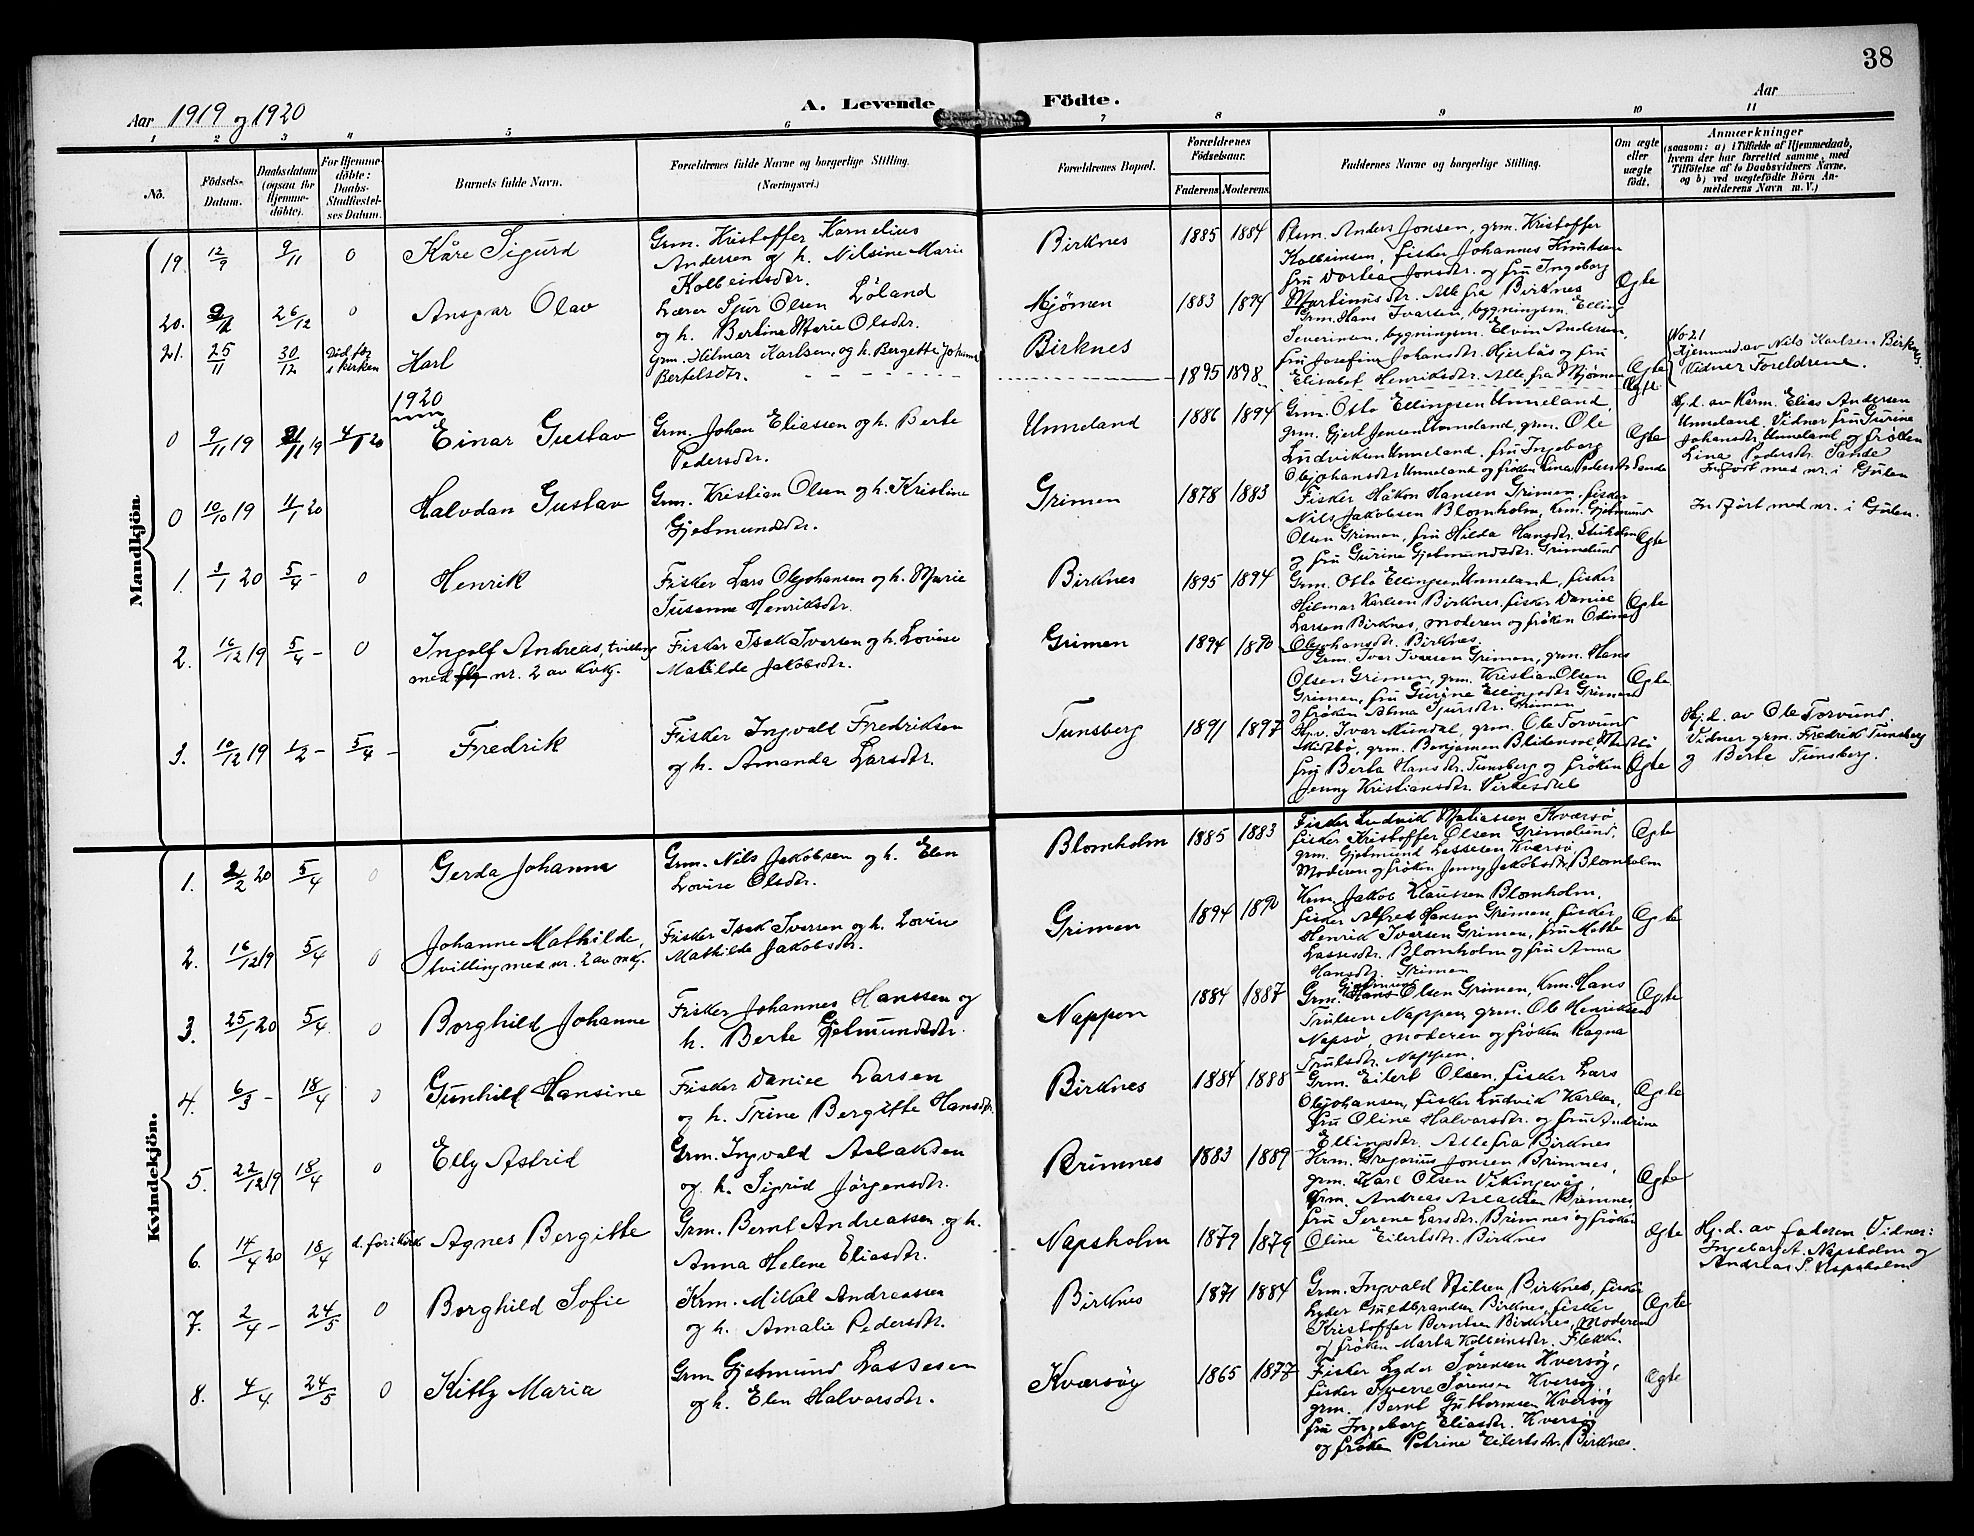 38
Aar 1919 og 1920
A. Levende Födte.
Aar
1 2 3 4 5 6 7 8 9 10 11
No.
Födsels-Datum.
Daabsdatum (ogsaa for Hjemme-döbte).
For Hjemme-döbte: Daabs-Stadfæstel-ses Datum.
Barnets fulde Navn.
Forældrenes fulde Navne og borgerlige Stilling. (Næringsvei.)
Forældrenes Bopæl.
Forældrenes Födselsaar.
Faderens. Moderens.
Faddernes Navne og borgerlig Stilling.
Om ægte eller uægte födt.
Anmærkninger
(saasom: a) i Tilfælde af Hjemmedaab, hvem der har forrettet samme, med Tilföielse af to Daabsvidners Navne, og b) ved uægtefödte Börn An-melderens Navn m. V.)
Mandkjön
19. 12/9 9/11 0 Kåre Sigurd
Grm. Kristoffer Kornelius
Andersen og h. Nilsine Marie
Kolbeinsdtr.
Birknes 1885 1884
Plsm. Anders Jonsen, grm. Kristoffer
Kolbeinsen, fisker Johannes Knutsen
fru Dortea Jonsdtr. og fru Ingeborg
Martinusdtr. Alle fra Birknes
Ægte
20. 26/12 0 Ansgar Olav
Lærer Sjur Olsen Löland
og h. Bertina Marie Olsdtr.
Mjömen 1883 1894
Grm. Hans Ivarsen, bygningsm. Elling
Severinsen, bygningsm. Elvin Andersen,
fru Josefine Johansdtr. Hjertås og fru
Elisabet Henriksdtr. Alle fra Mjömen
Ægte
21. 25/11 30/12 Död før i kirken Karl
Grm. Hilmar Karlsen, og h. Bergette Johanne
Bertelsdtr.
Birknes 1895 1898
Ægte
No 21
Hjemmed. av Nils Karlsen Birknes.
Vidner Foreldrene.
1920
0 9/11 19 21/11 19 4/1 20 Einar Gustav
Grm. Johan Eliassen og h. Berte
Pedersdtr.
Unneland 1886 1894
Grm. Otto Ellingsen Unneland,
grm. Gjert Jensen Unneland, grm. Ole
Ludviksen Unneland, fru Ingeborg
Olejohansdtr Unneland og fröken Lina Pedersdtr Sande
Ægte
Hj.d. av Kerm. Elias Andersen
Unneland. Vidner fru Gurine
Johansdtr. Unneland og fröken
Lina Pedersdtr Sande
Infört med nr. i Gulen
0 10/10 19 4/1 20 Halvdan Gustav
Grm. Kristian Olsen og h. Kristine
Gjetmundsdtr.
Grimen 1878 1883
Fisker Håkon Hansen Grimen, fisker
Nils Jakobsen Blomholm, krm. Gjetmund
Olsen Grimen, fru Hilda Hansdtr.
og fru Gurine Gjetmundsdtr. Grimelund
Ægte
Indfört med nr. i Gulen.
1. 3/1 20 5/4 – 0 Henrik
Fisker Lars Olejohansen og h. Marie
Susanne Henriksdtr.
Birknes 1895 1894
Grm. Otto Ellingsen Unneland, fisker
Hilmar Karlsen Birknes, fisker Daniel
Larsen Birknes, moderen og fröken Odine
Olejohansdtr. Birknes.
Ægte
2. 16/12 19 5/4 – 0 Ingolf Andreas, tvilling
med nr. 2 av kvkj.
Fisker Isak Iversen og h. Lovise
Matilde Jakobsdtr.
Grimen 1894 1890
Grm. Ivar Ivarsen Grimen, grm. Hans
Olsen Grimen, grm. Kristian Olsen
Grimen, fru Gurine Ellingsdtr Grimen
og fröken Alma Sjursdtr. Grimen
Ægte
3. 10/12 19 1/2 – 5/4 – Fredrik
Fisker Ingvald Fredriksen
og h. Amanda Larsdtr.
Tunsberg 1891 1897
Ivar Mundal, grm. Ole Torvund
grm. Benjamen
fru Berta Hansdtr. Tunsberg og fröken
Jenny Kristiansdtr. Virkesdal
Ægte
Hj.d. av Ole Torvund.
Vidner grm. Fredrik Tunsberg
og Berte Tunsberg.
Kvindekjön.
1. 2/2 20 5/4 0 Gerda Johanne
Grm. Nils Jakobsen og h. Elen
Lovise Olsdtr.
Blomholm 1885 1883
Fisker Ludvik Matiassen Kværsö,
fisker Kristoffer Olsen Grimelund,
grm. Gjetmund Lassesen Kversö,
Moderen og fröken Jenny Jakobsdtr. Blomholm
Ægte
2. 16/12 19 5/4 0 Johanne Mathilde,
tvilling med nr. 2 av mkj.
Fisker Isak Iversen og h. Lovise
Mathilde Jakobsdtr.
Grimen 1894 1890
Krm. Jakob Klaussen Blomholm,
fisker Alfred Hansen Grimen, fisker
Henrik Ivarsen Grimen, fru Mette
Lassesdtr. Blomholm og fru Anna
Hansdtr. Grimen
Ægte
3. 25/1 20 5/4 0 Borghild Johanne
Fisker Johannes Hanssen og
h. Berte Gjetmundsdtr.
Nappen 1884 1887
Grm. Gjetmund Olsen Grimen, Krm. Hans
Trulsen Nappen, grm. Ole Henriksen
Napsö, moderen og fröken Ragna
Trulsdtr. Nappen.
Ægte
4. 6/3 – 18/4 0 Gunhild Hansine
Fisker Daniel Larsen
og h. Trine Bergitte Hansdtr.
Birknes 1884 1888
Grm. Eilert Olsen, fisker Lars
Olejohansen, fisker Ludvik Karlsen,
fru Oline Halvarsdtr. og fru Andrine
Ellingsdtr. Alle fra Birknes
Ægte
5. 22/12 19 18/4 0 Elly Astrid
Grm. Ingvald Aslaksen
og h. Sigrid Jörgensdtr.
Brimnes 1883 1889
Krm. Gregorius Jonsen Brimnes,
grm. Karl Olsen Vikingevåg,
Grm. Andreas Aslaksen Brimnes
fru Serene Larsdtr. Brimnes og fröken
Oline Eilertsdtr. Birknes
Ægte
6. 14/4 20 18/4 d. för i kirk. Agnes Bergitte
Grm. Bernt Andreassen og h.
Anna Helene Eliasdtr.
Napsholm 1879 1879
Ægte
Hj.d. av faderen Vidner:
Ingeborg A. Napsholm og
Andreas S. Napsholm
7. 2/4 – 24/5 0 Borghild Sofie
Krm. Mikal Andreassen
og h. Amalie Pedersdtr.
Birknes 1871 1884
Grm. Ingvald Nilsen Birknes, fisker
Lyder Guldbrandsen Birknes, fisker
Kristoffer Berntsen Birknes, moderen
og fröken Marta Kolbeinsdtr. Flekke.
Ægte
8. 4/4 24/5 0 Kitty Maria
Grm Gjetmund Lassesen
og h. Elen Halvarsdtr.
Kværsöy 1865 1877
Fisker Lyder Sörensen Kversöy,
fisker Sverre Sörensen Kversöy,
grm. Bernt Guttormsen Kversöy
fru Ingeborg Eliasdtr. Kversöy
og fröken Petrine Eilertsdtr. Birknes.
Ægte